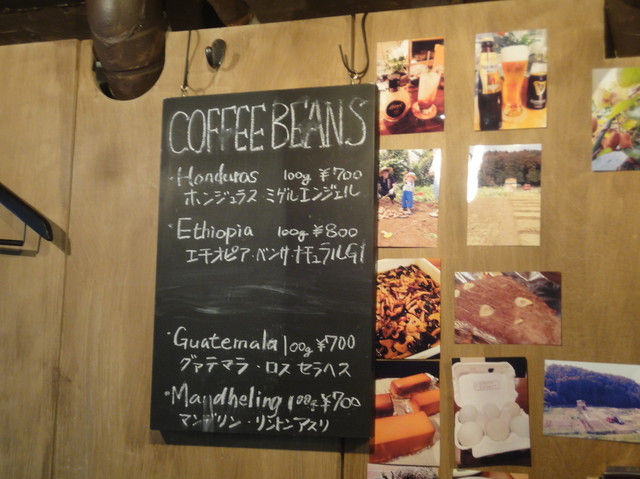 COFFEE BEANS
・Honduras 100g ¥700
ホンジュラス・ミゲルエンジェル
・Ethiopia 100g ¥800
エチオピア・ベンサ・ナチュラルG1
・Guatemala 100g ¥700
グァテマラ・ロス セラヘス
・Mandheling 100g ¥700
マンデリン・リントンアスリ